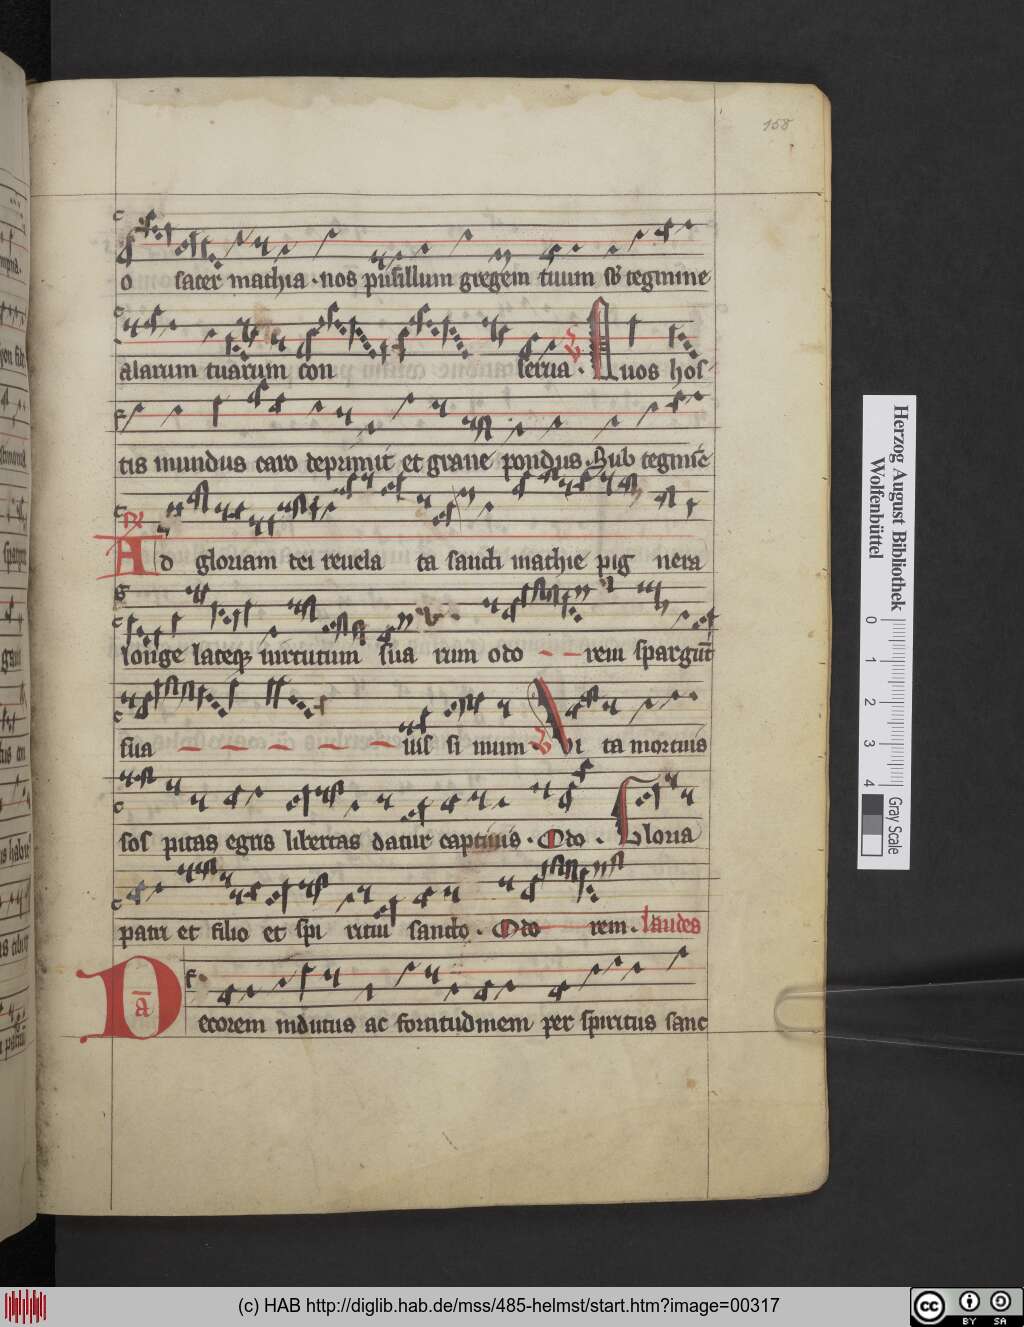 158
o sacer mathia · nos pusillum gregem tuum sb tegmine
alarum tuarum con serua . V Quos hos-
tis mundus caro deprimit et graue pondus . Sub tegmīe
R Ad gloriam dei reuela ta sancti mathie pig nera
longe lateqꝫ uirtutum sua rum odo rem spargūt
sua uis si mum V Vi ta mortuis
sos pitas egris libertas datur captiuis . Odo . Gloria
patri et filio et spi ritui sancto . Odo rem . laudes
Decorem indutus ac fortitudinem per spiritus sanc
ā
Herzog August Bibliothek
Wolfenbüttel
0 1 2 3 4
Gray Scale
(c) HAB http://diglib.hab.de/mss/485-helmst/start.htm?image=00317
cc BY SA